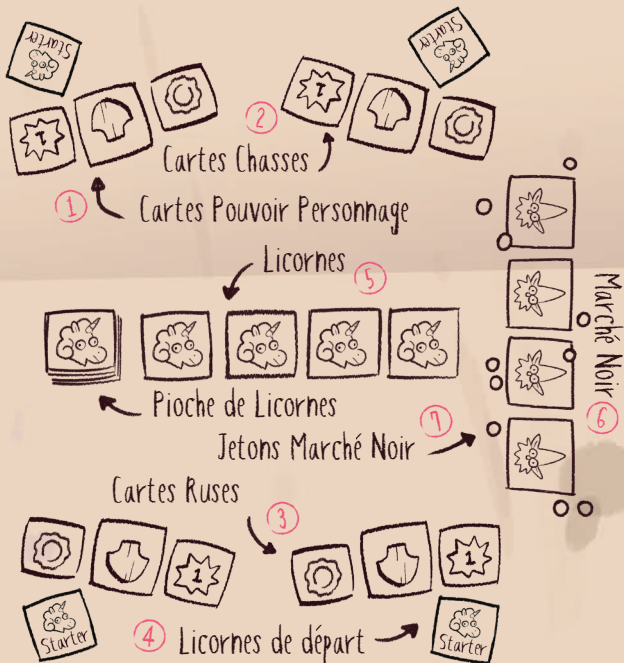 Starter
Starter
1
1
2
Cartes Chasses
1
Cartes Pouvoir Personnage
Licornes
5
Marché Noir
6
Pioche de Licornes
7
Jetons Marché Noir
Cartes Ruses
3
1
1
Starter
4
Licornes de départ
Starter